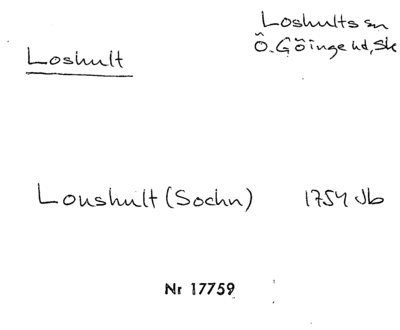 Loshults sn
Loshult
Ö. Göinge hd, Sk
Loushult (Sochn) 1754 Jb
Nr 17759